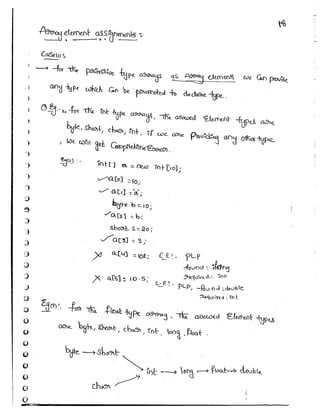 18
Array element assignments :-
Case(1) :
→ for the primitive type arrays as Array elements we can provide
any type which can be promoted to declare type.
Eg:- for the int type arrays, the allowed Element types are
byte, short, char, int, if we are providing any other type
we will get CompileTime Error.
Eg(1) :- int[] a = new int[10];
✓ a[0] = 10;
✓ a[1] = 'a';
byte b = 10;
✓ a[2] = b;
short s = 20;
✓ a[3] = s;
X a[4] = 10l; C.E :- PLP
found : long
required : int
X a[5] = 10.5; C.E :- PLP, found : double
required : int
Eg(2): for the float type array, the allowed Element types
are byte, short, char, int, long, float.
byte → short
int → long → float → double
char